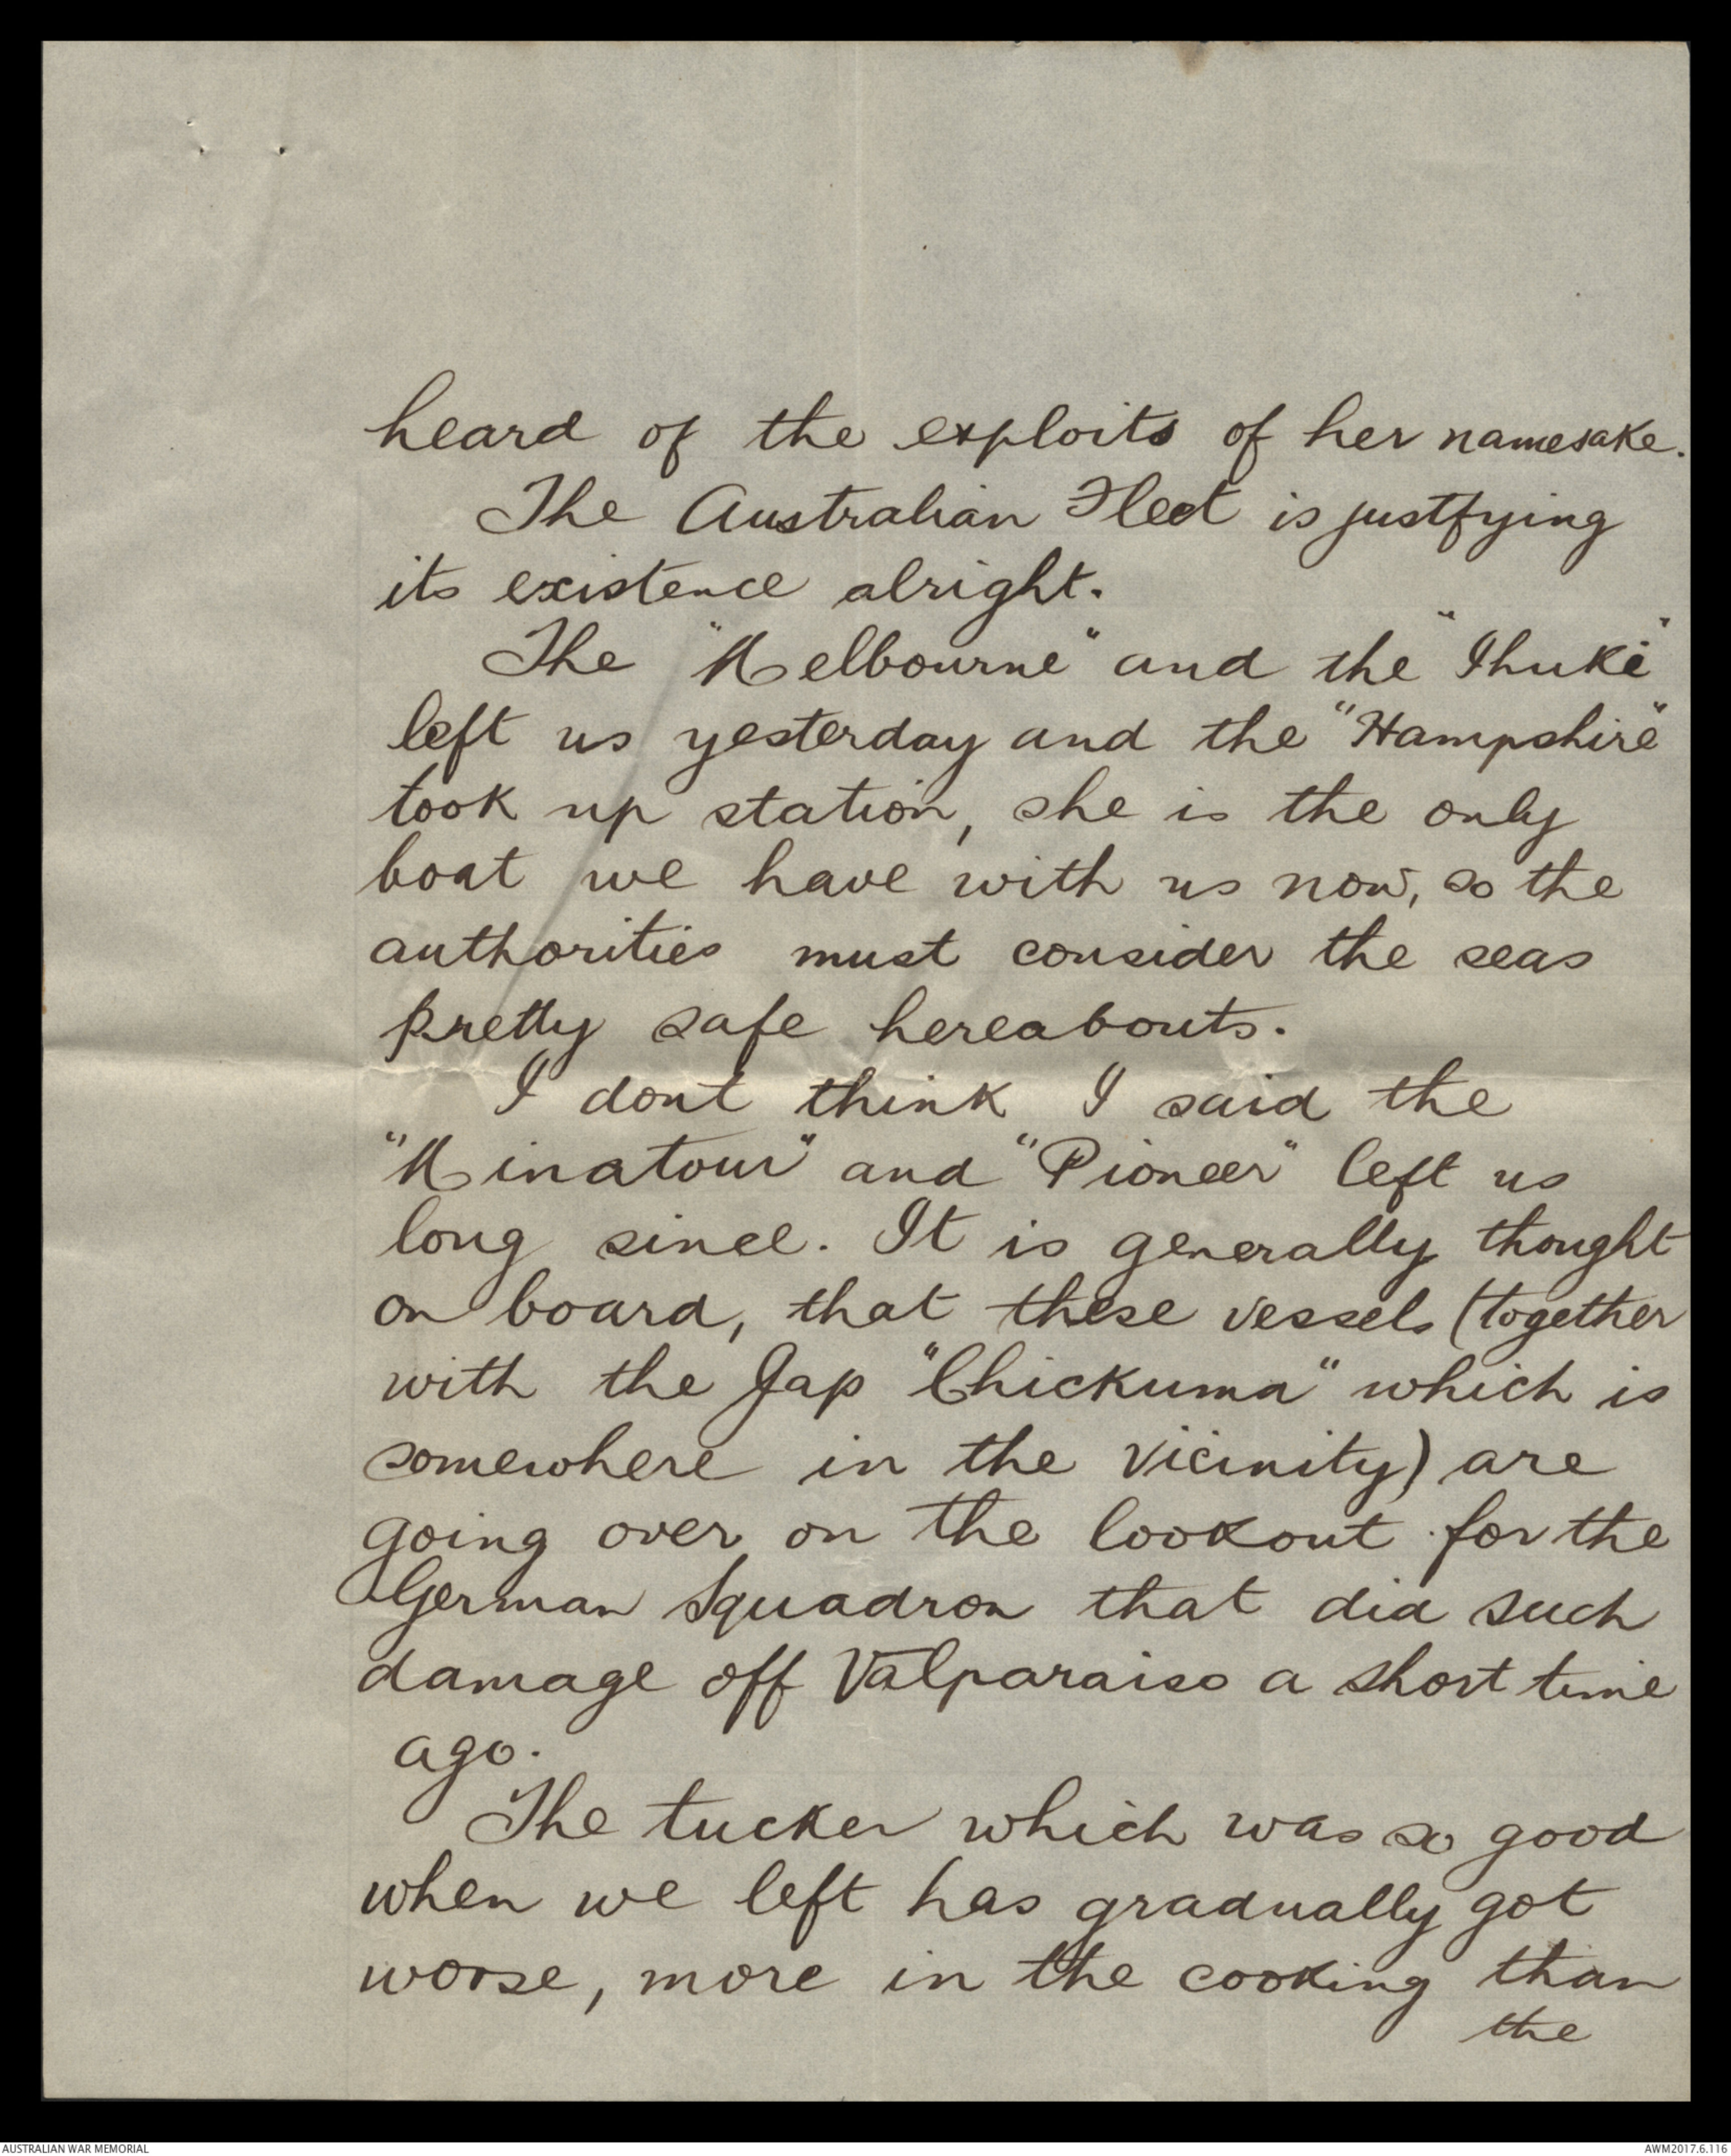 heard of the exploits of her namesake.
The Australian Fleet is justfying
its existence alright.
The "Melbourne" and the "Ihuki"
left us yesterday and the "Hampshire"
took up station, she is the only
boat we have with us now, so the
authorities must consider the seas
pretty safe hereabouts.
I dont think I said the
"Minatour" and "Pioneer" left us
long since. It is generally thought
on board, that these vessels (together
with the Jap "Chickuma" which is
somewhere in the vicinity) are
going over on the lookout for the
German Squadron that did such
damage off Valparaiso a short time
ago.
The tucker which was so good
when we left has gradually got
worse, more in the cooking than
the
AUSTRALIAN WAR MEMORIAL
AWM2017.6.116